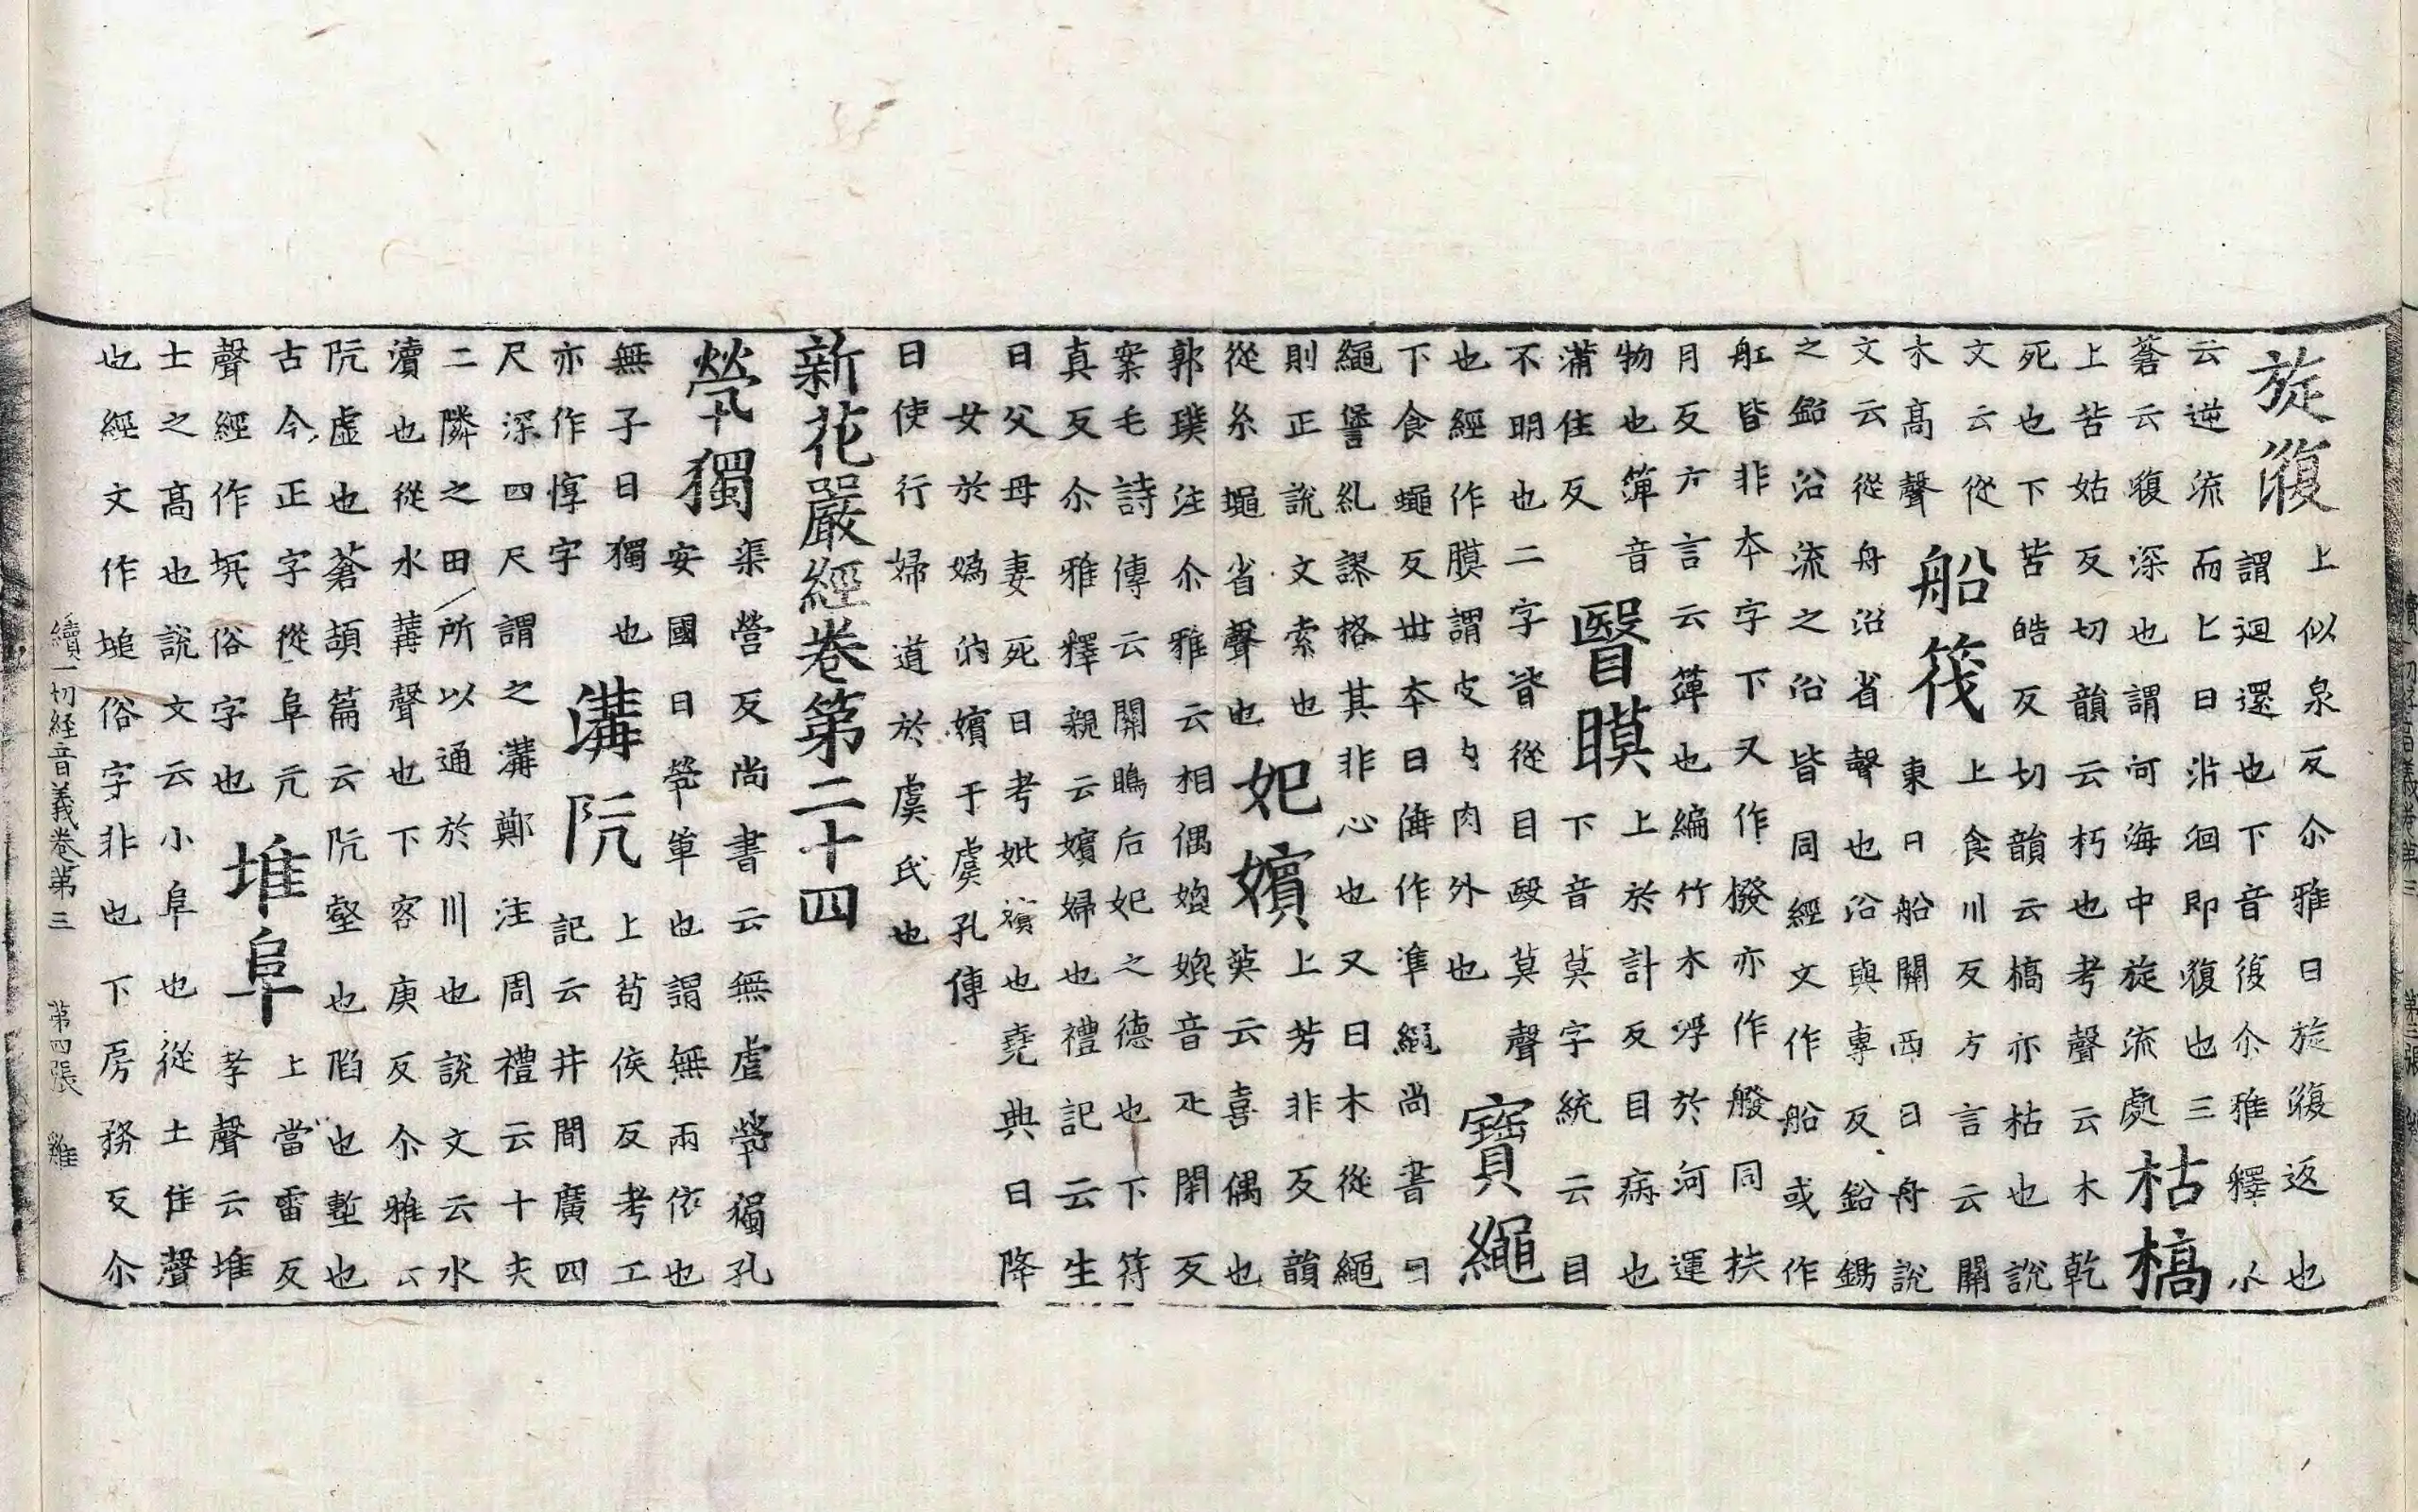 旋澓
上似泉反尒雅曰旋澓返也
謂迴還也下音復尒雅釋水
云逆流而上曰泝洄即澓也三
蒼云澓深也謂河海中旋流處
枯槁
上苦姑反切韻云朽也考聲云木乾
死也下苦皓反切韻云槁亦枯也說
文云從
木高聲
船筏
上食川反方言云關
東曰船關西曰舟說
文云從舟沿省聲也沿與專反鈆錫
之鈆沿流之沿皆同經文作船或作
舡皆非本字下又作撥亦作𦪑同扶
月反方言云簰也編竹木浮於河運
物也簰音
蒲佳反
瞖瞙
上於計反目病也
下音莫字統云目
不明也二字皆從目殹莫聲
也經作膜謂皮内肉外也
寶繩
下食蠅反世本曰倕作準繩尚書曰
繩諐糺謬格其非心也又曰木從繩
則正說文索也
從糸蠅省聲也
妃嬪
上芳非反韻
英云喜偶也
郭璞注尒雅云相偶媲媲音疋閉反
案毛詩傳云關鵙后妃之德也下符
真反尒雅釋親云嬪婦也禮記云生
曰父母妻死曰考妣嬪也堯典曰降
女於嬀汭嬪于虞孔傳
曰使行婦道於虞氏也
新花嚴經卷第二十四
㷀獨
渠營反尚書云無虐㷀獨孔
安國曰㷀單也謂無兩依也
無子曰獨也
亦作惸字
溝阬
上苟侯反考工
記云井間廣四
尺深四尺謂之溝鄭注周禮云十夫
二隣之田所以通於川也說文云水
瀆也從水冓聲也下客庚反尒雅云
阬虛也蒼頡篇云阬壑也陷也塹也
古今正字從阜亢
聲經作坑俗字也
堆阜
上當雷反
考聲云堆
土之高也說文云小阜也從土隹聲
也經文作塠俗字非也下房務反尒
續一切経音義卷第三 第四張 雞